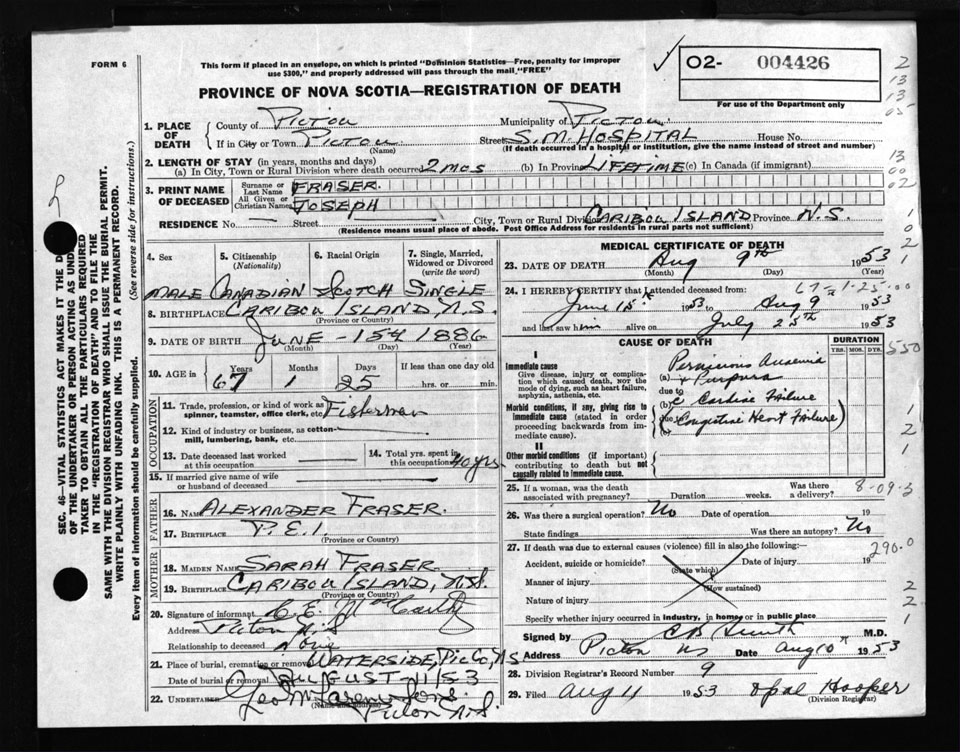 FORM 6
This form if placed in an envelope, on which is printed "Dominion Statistics—Free, penalty for improper
use $300," and properly addressed will pass through the mail "FREE"
PROVINCE OF NOVA SCOTIA—REGISTRATION OF DEATH
O2- 004426
For use of the Department only
2
13
13
05
13
00
02
1. PLACE OF DEATH
County of Pictou Municipality of Pictou
If in City or Town Pictou Street S.M. HOSPITAL House No.
(Name) (If death occurred in a hospital or institution, give the name instead of street and number)
2. LENGTH OF STAY (in years, months and days)
(a) In City, Town or Rural Division where death occurred 2 mos (b) In Province LIFETIME (c) In Canada (if immigrant)
3. PRINT NAME OF DECEASED
Surname or Last Name FRASER.
All Given or Christian Names JOSEPH
RESIDENCE No. Street City, Town or Rural Division CARIBOU ISLAND Province N.S.
(Residence means usual place of abode. Post Office Address for residents in rural parts not sufficient)
4. Sex 5. Citizenship (Nationality) 6. Racial Origin 7. Single, Married, Widowed or Divorced (write the word)
MALE CANADIAN SCOTCH SINGLE
8. BIRTHPLACE CARIBOU ISLAND, N.S.
(Province or Country)
9. DATE OF BIRTH JUNE - 15th 1886
(Month) (Day) (Year)
10. AGE in Years Months Days If less than one day old
67 1 25 hrs. or min.
OCCUPATION
11. Trade, profession, or kind of work as spinner, teamster, office clerk, etc. Fisherman
12. Kind of industry or business, as cotton-mill, lumbering, bank, etc.
13. Date deceased last worked at this occupation 14. Total yrs. spent in this occupation 40 yrs.
15. If married give name of wife or husband of deceased
FATHER
16. NAME ALEXANDER FRASER.
17. BIRTHPLACE P.E.I.
(Province or Country)
MOTHER
18. MAIDEN NAME SARAH FRASER
19. BIRTHPLACE CARIBOU ISLAND, N.S.
(Province or Country)
20. Signature of informant C. E. McCarthy
Address Pictou N.S
Relationship to deceased None
21. Place of burial, cremation or removal WATERSIDE, Pic Co, N.S
Date of burial or removal AUGUST - 11/53
22. UNDERTAKER Geo McLaren & Sons.
(Name and Address) Pictou N.S.
MEDICAL CERTIFICATE OF DEATH
23. DATE OF DEATH Aug 9th 1953
(Month) (Day) (Year)
24. I HEREBY CERTIFY that I attended deceased from 67-1-25-00
June 15th 1953 to Aug 9 1953
and last saw him alive on July 25th 1953
CAUSE OF DEATH DURATION
YRS. MOS. DYS.
I
Immediate cause
Give disease, injury or complication which caused death, not the mode of dying, such as heart failure, asphyxia, asthenia, etc.
(a) Pernicious Anaemia & Purpura
due to
Morbid conditions, if any, giving rise to immediate cause (stated in order proceeding backwards from immediate cause).
(b) c Cardiac Failure
due to (Congestive Heart Failure)
(c)
II
Other morbid conditions (if important) contributing to death but not causally related to immediate cause.
550
25. If a woman, was the death associated with pregnancy? Duration weeks. Was there a delivery? 8-09-3
26. Was there a surgical operation? No Date of operation 19
State findings Was there an autopsy? No
27. If death was due to external causes (violence) fill in also the following: 290.0
Accident, suicide or homicide? (State which) Date of injury 19
Manner of injury (How sustained)
Nature of injury
Specify whether injury occurred in industry, in home or in public place
Signed by C B Smith M.D.
Address Pictou NS Date Aug 10th 1953
28. Division Registrar's Record Number 9
29. Filed Aug 11 1953 Opal Hooper
(Division Registrar)
SEC. 46—VITAL STATISTICS ACT MAKES IT THE
OF THE UNDERTAKER OR PERSON ACTING AS UNDER
TAKER TO OBTAIN ALL THE PARTICULARS REQUIRED
IN THE "REGISTRATION OF DEATH" AND TO FILE THE
SAME WITH THE DIVISION REGISTRAR WHO SHALL ISSUE THE BURIAL PERMIT.
WRITE PLAINLY WITH UNFADING INK. THIS IS A PERMANENT RECORD.
Every item of information should be carefully supplied. (See reverse side for instructions.)